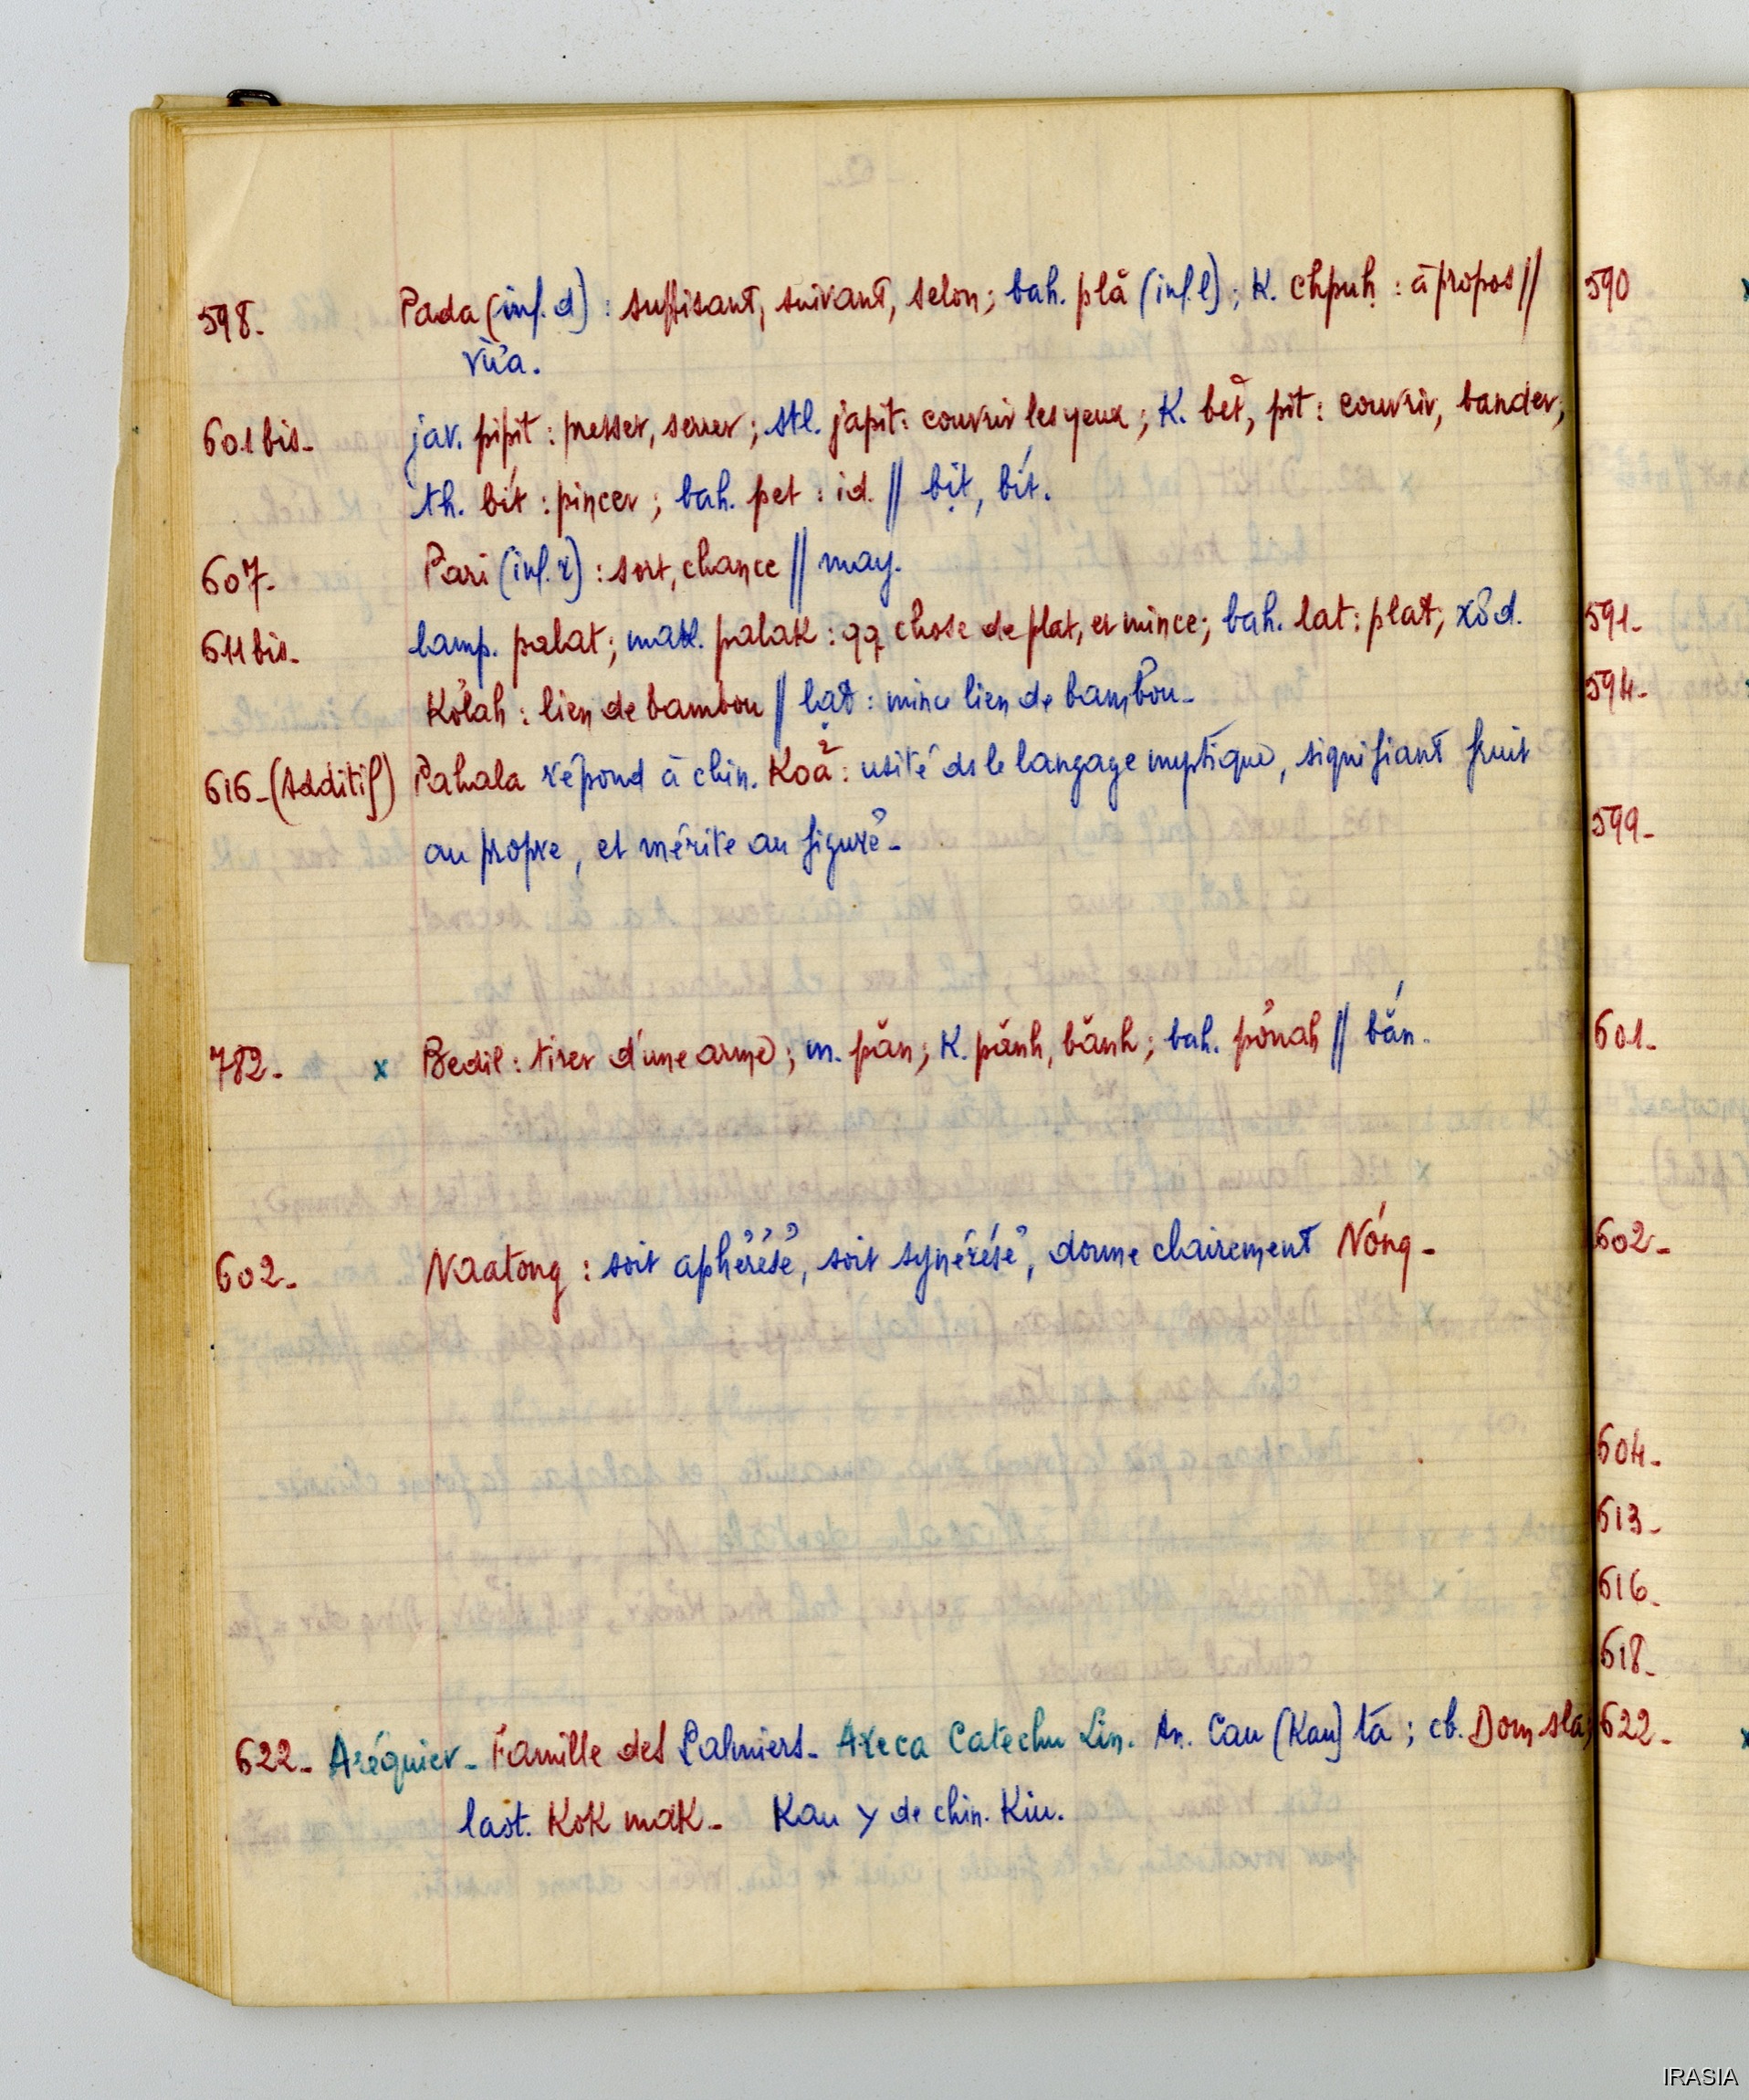 598. Pada (inf. d) : suffisant, suivant, selon; bah. plă (inf. l); K. chpuḥ : à propos //
vừa.
601 bis. jav. pipit : presser, serrer; stl. japit : couvrir les yeux; K. bĕt, pit : couvrir, bander,
th. bít : pincer; bah. pet : id. // bịt, bít.
607. Pari (inf. r) : sort, chance // may.
611 bis. lamp. palat; mak. palak : qq chose de plat, et mince; bah. lat : plat; xơd.
Kơ̆lah : lien de bambou // lạt : mince lien de bambou.
616. (Additif) Pahala répond à chin. Koả : usité ds le langage mystique, signifiant fruit
au propre, et mérite au figuré.
782. x Bedil : tirer d'une arme; m. păn; K. pănh, bănh; bah. pơ̆nah // bắn.
602. Naatong : soit aphérésé, soit synérésé, donne clairement Nóng.
622. Aréquier. Famille des Palmiers. Areca Catechu Lin. An. Cau (Kau) ta; cb. Dom sla;
laot. Kok mak. Kau > de chin. Kiu.
590
591.
594.
599.
601.
602.
604.
613.
616.
618.
622.
IRASIA